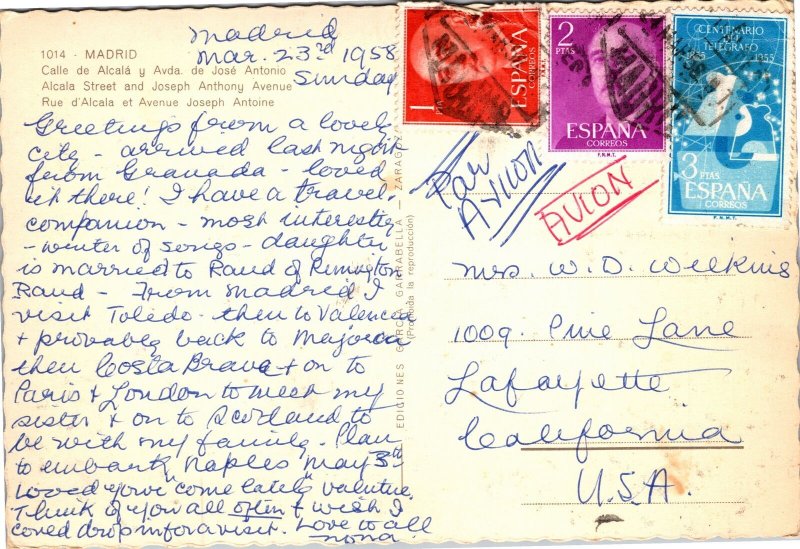 Madrid
Mar. 23rd 1958
Sunday
1014 - MADRID
Calle de Alcalá y Avda. de José Antonio
Alcala Street and Joseph Anthony Avenue
Rue d'Alcala et Avenue Joseph Antoine
Greetings from a lovely
city - arrived last night
from Granada - loved
it there! I have a travel
companion - most interesting
- writer of songs - daughter
is married to Rand of Remington
Rand - From Madrid I
visit Toledo - then to Valencia
+ probably back to Majorca
then Costa Brava + on to
Paris + London to meet my
sister + on to Scotland to
be with my family. Plan
to embark Naples May 3th
Loved your come lately valentine.
Think of you all often + wish I
coved drop in for a visit. Love to all
nona.
EDICIONES GARCIA GARRABELLA - ZARAGOZA
(Prohibida la reproducción)
1
ESPAÑA
CORREOS
2
PTAS
ESPAÑA
CORREOS
F.N.M.T.
CENTENARIO
TELEGRAFO
1955
3
PTAS
ESPAÑA
CORREOS
F.N.M.T.
Par
Avion
AVION
Mrs. W. D. Wilkins
1009. Pine Lane
Lafayette
California
U.S.A.